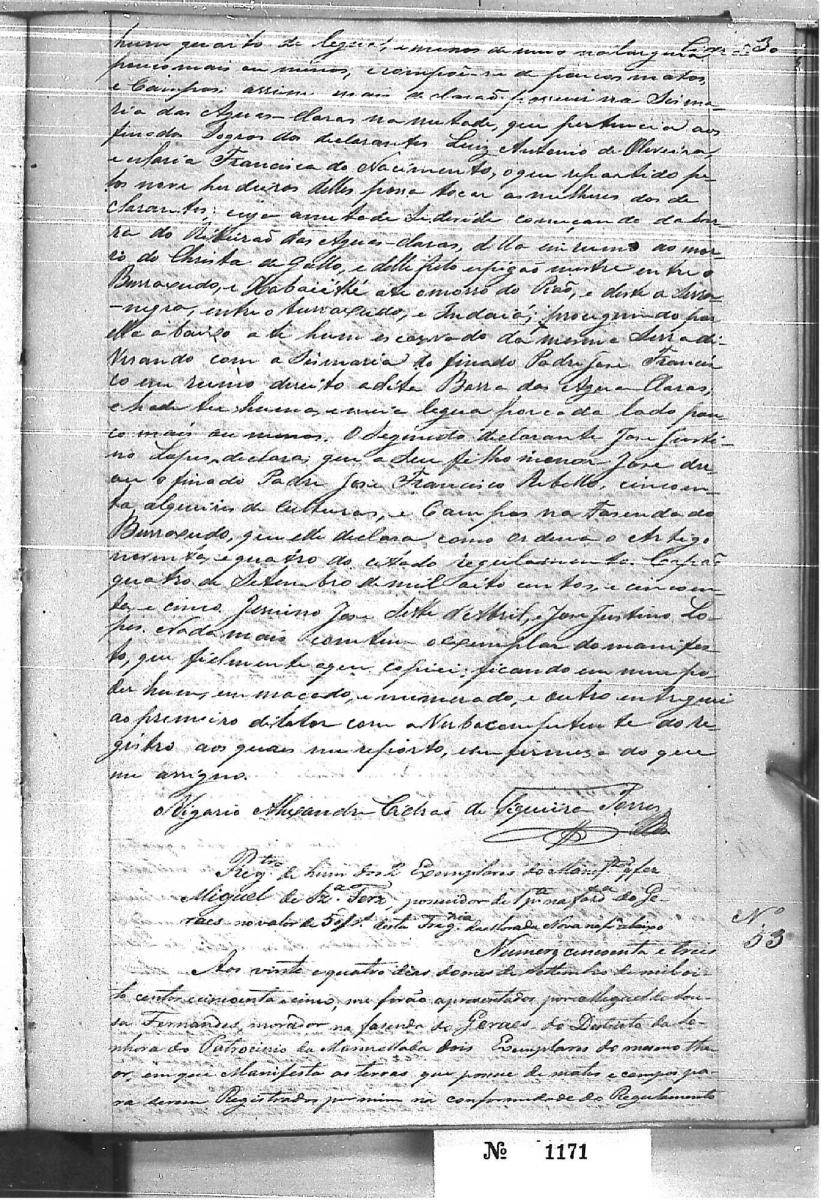 hum quarto de legua, e menos de meio na largura
pouco mais ou menos, e compõe-se de poucos matos,
e Campos: assim mais declarão possuir na Seisma-
ria das Agoas-claras na metade, que pertencia aos
finados Sogros dos declarantes Luiz Antonio de Oliveira,
e Maria Francisca do Nacimento, o que repartido pe-
los nove herdeiros delles possa tocar a mulheres dos de
clarantes: cuja ametade Se devide começando da bar-
ra do Ribeirão das Agoas-claras, della em rumo ao mor-
ro do Christa de Gallo, e delle pelo espigão mestre entre o
Burraxudo, e Habaiété até o morro do Pião, e deste a Serra
-negra, entre o burraxudo, e Indaiá; proceguindo por
ella abaixo a té hum escalvado da mesma Serra di-
visando com a Seismaria do finado Padre José Francis
co em rumo direito a dita Barra das Agoas Claras,
e hade ter huma, e meia legua por cada lado pou-
co mais ou menos. O Segundo declarante José Justi-
no Lopes, declara, que a Seu filho menor José de-
ou o finado Padre José Francisco Rebello, cincoen-
ta alqueires de Culturas, e Campos na Fasenda do
Burraxudo, que elle declara como ordena o Artigo
noventa, e quatro do citado regulamento. Capão
quatro de Setembro de mil oito centos, e cincoen-
ta, e cinco. José Sette d'Abril, e José Justino Lo-
pes. Nada mais contem o exemplar do manifes-
to, que fielmente aqui copiei: ficando em meu po-
der hum, em maçado, e numerado, e outro entreguei
ao primeiro dilator com a Verba competente do re-
gistro aos quais me reporto, em fermeza do que
me assigno.
O Vigario Alexandre de Siqueira Torres
No
53
Regtro de hum dos 2 Exemplares do Manifto q fez
Miguel de Sza Ferz possuidor de na fazda do Ge-
raes no valor de desta Fregnia da Morada Nova na fa abaixo
Numero cincoenta e tres
Aos vinte e quatro dias do mes de Settembro de mil oi-
to centos cincoenta e cinco, me forão apresentados por Miguel de Sou-
sa Fernandes, morador na fasenda do Geraes do Districto da Se-
nhora do Patrocinio da Marmellada dois Exemplares do mesmo the-
or, em que Manifesta as terras que possue de matos e campos pa-
ra serem Registrados por mim na conformidade do Regulamento
No 1171